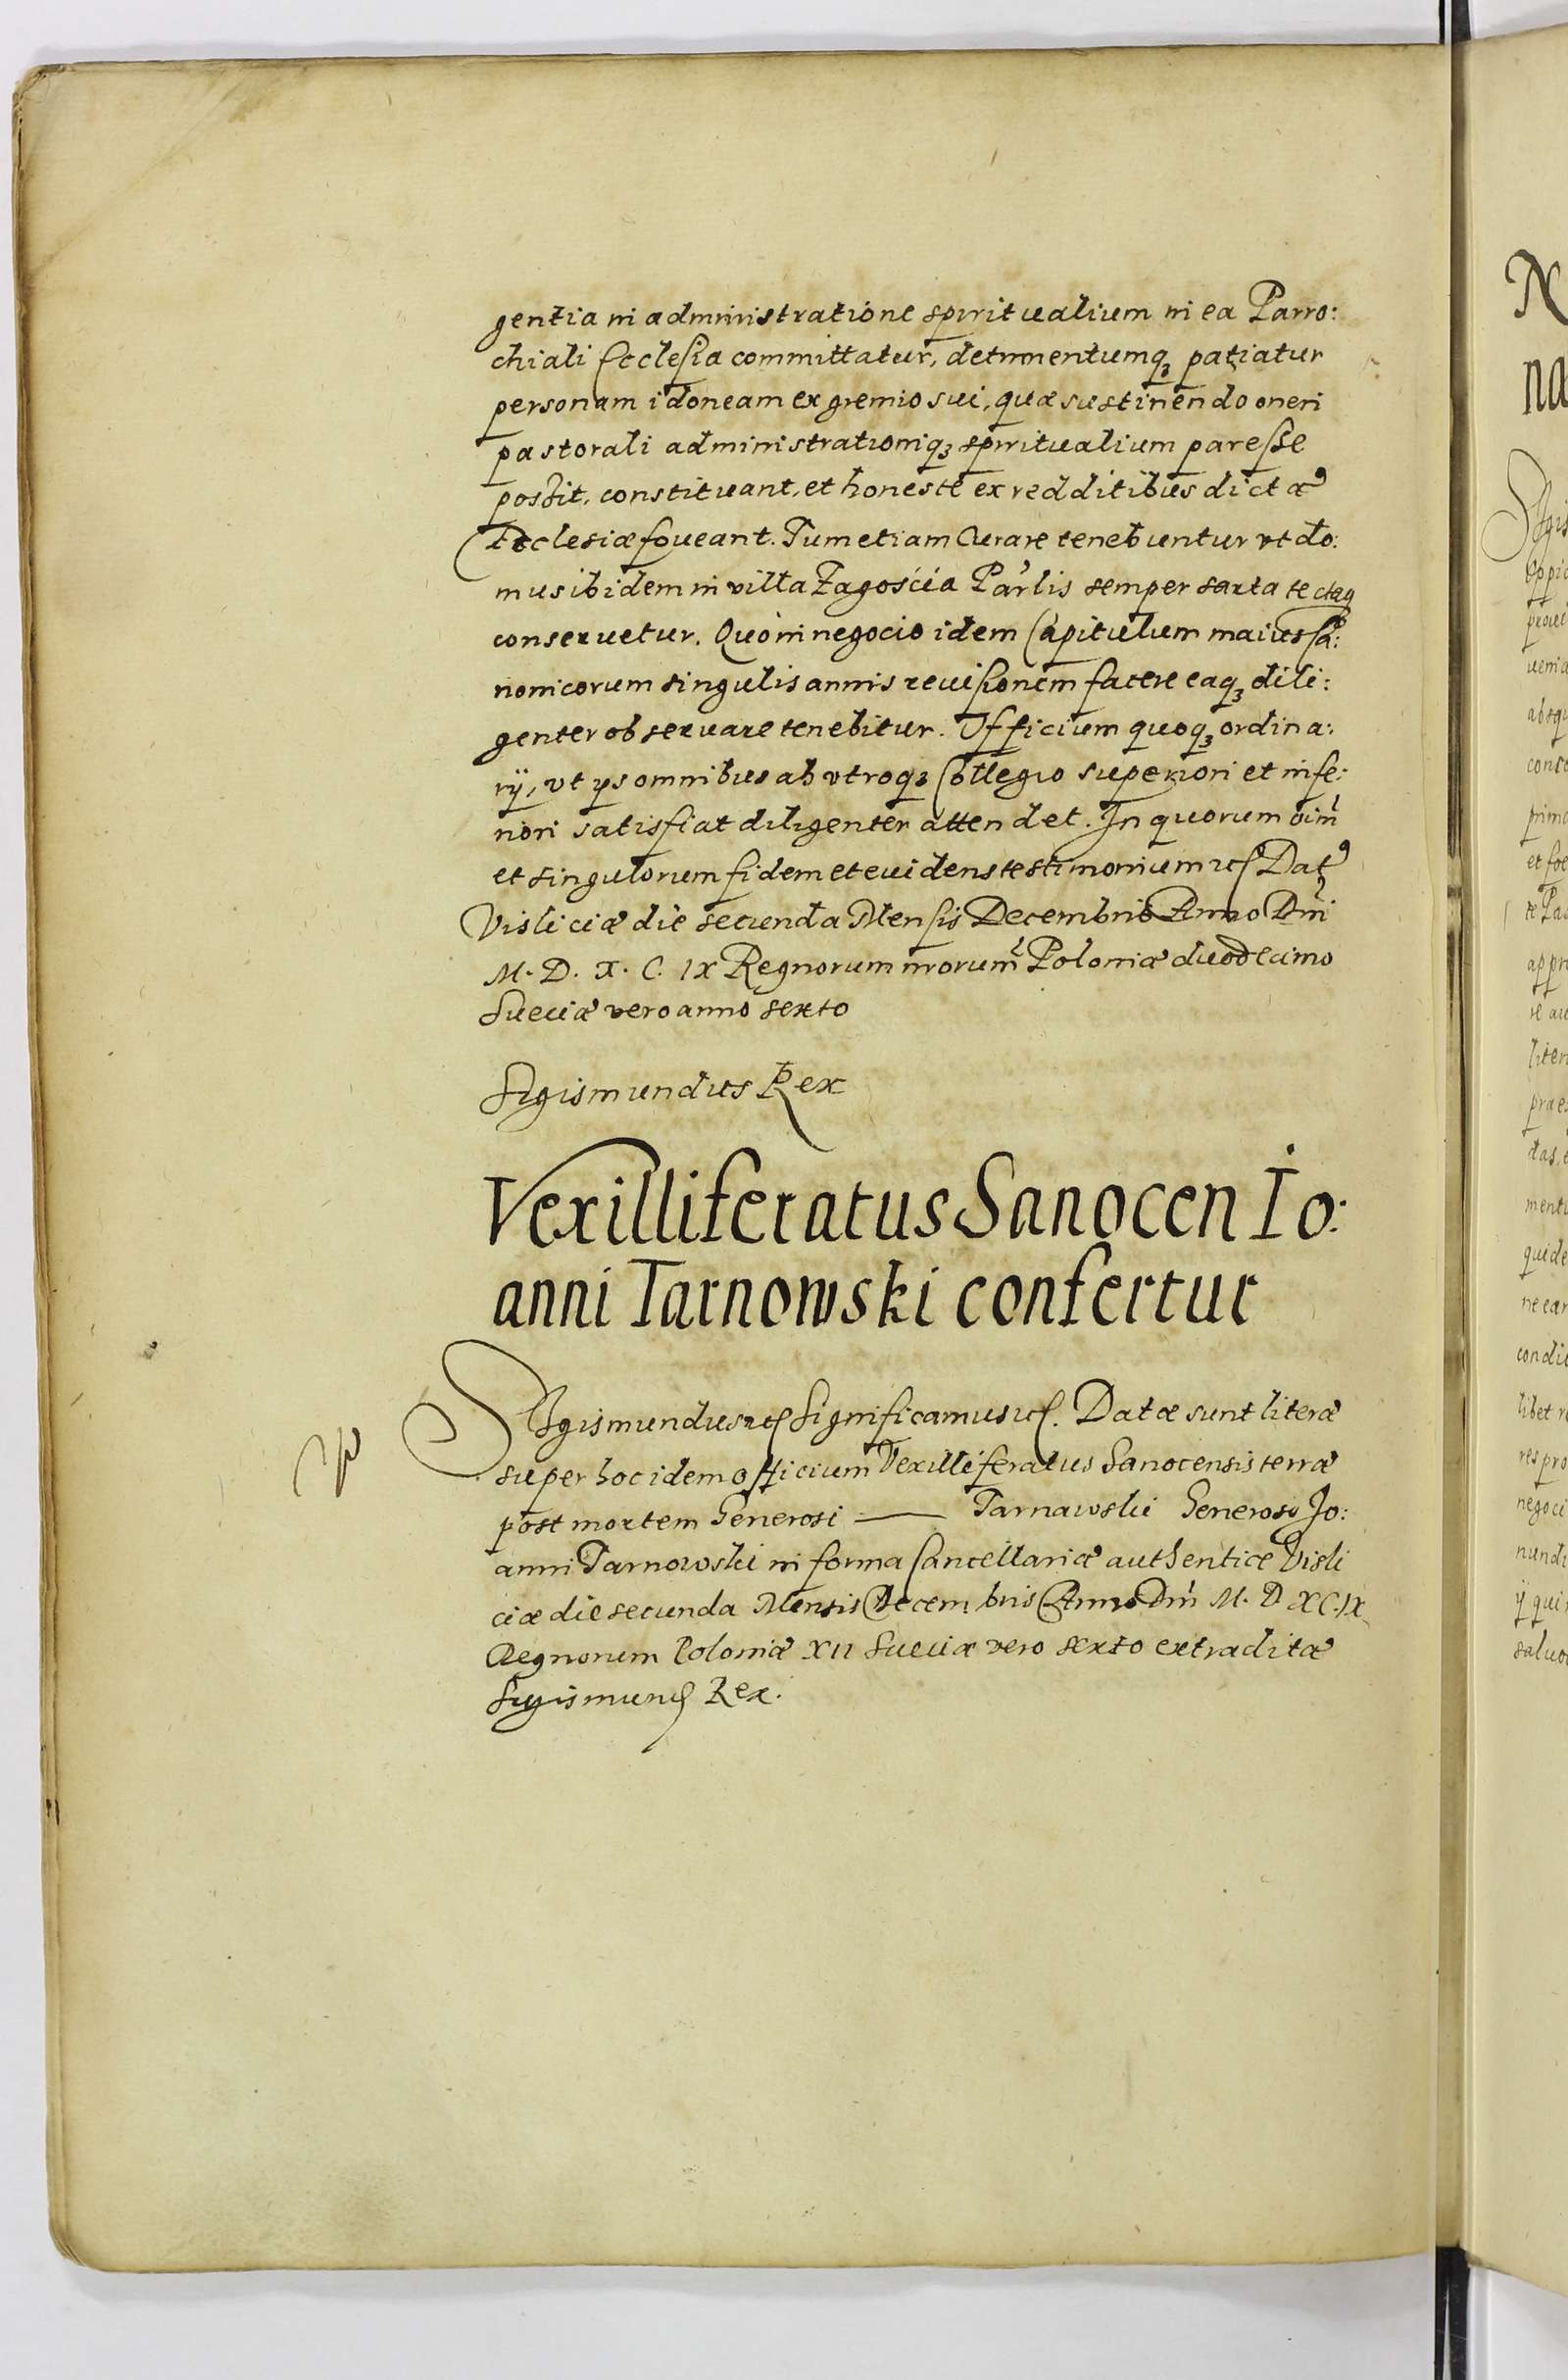 gentia in administratione spiritualium in ea Parro:
chiali Ecclesia committatur, detrimentumq₃ patiatur
personam idoneam ex gremio sui, quæ sustinendo oneri
pastorali administrationiq₃ spiritualium par esse
possit, constituant, et honeste ex redditibus dictæ
Ecclesiæ foueant. Tum etiam Curare tenebuntur vt do:
mus ibidem in villa Zagoscia Parlis semper sarta tectaq
conseruetur. Quo in negocio idem Capitulum maius Ca:
nonicorum singulis annis reuisionem facere eaq₃ dili:
genter obseruare tenebitur. Officium quoq₃ ordina:
rij, vt ijs omnibus ab vtroq₃ Collegio superiori et infe:
riori satisfiat diligenter attendet. In quorum oim
et singulorum fidem et euidens testimonium etc Dat
Visliciæ die secunda Mensis Decembris Anno Dni
M. D. X. C. IX Regnorum nrorum Poloniæ duodecimo
Sueciæ vero anno sexto
Sigismundus Rex
Vexilliferatus Sanocen Io:
anni Tarnowski confertur
Sigismundus etc Significamus etc. Datæ sunt literæ
super hoc idem officium Vexilliferatus Sanocensis terræ
post mortem Generosi —— Tarnawski Generoso Jo:
anni Tarnowski in forma Cancellariæ authentice Visli
ciæ die secunda Mensis Decembris Anno Dni M. D XC. IX
Regnorum Poloniæ XII Sueciæ vero sexto extraditæ
Sigismund Rex.